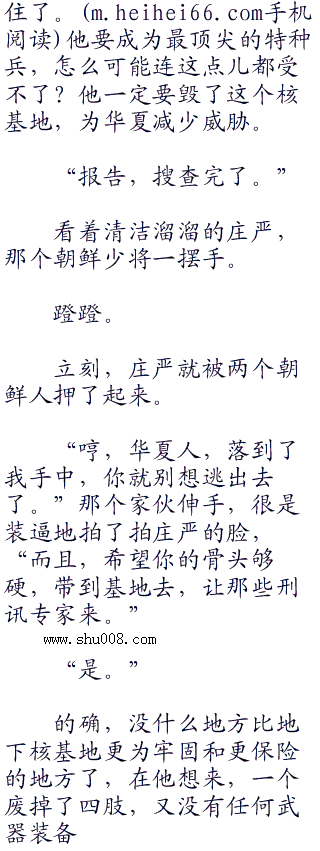 住了。(m.heihei66.com手机
阅读)他要成为最顶尖的特种
兵，怎么可能连这点儿都受
不了？他一定要毁了这个核
基地，为华夏减少威胁。
“报告，搜查完了。”
看着清洁溜溜的庄严，
那个朝鲜少将一摆手。
蹬蹬。
立刻，庄严就被两个朝
鲜人押了起来。
“哼，华夏人，落到了
我手中，你就别想逃出去
了。”那个家伙伸手，很是
装逼地拍了拍庄严的脸，
“而且，希望你的骨头够
硬，带到基地去，让那些刑
讯专家来。”
www.shu008.com
“是。”
的确，没什么地方比地
下核基地更为牢固和更保险
的地方了，在他想来，一个
废掉了四肢，又没有任何武
器装备